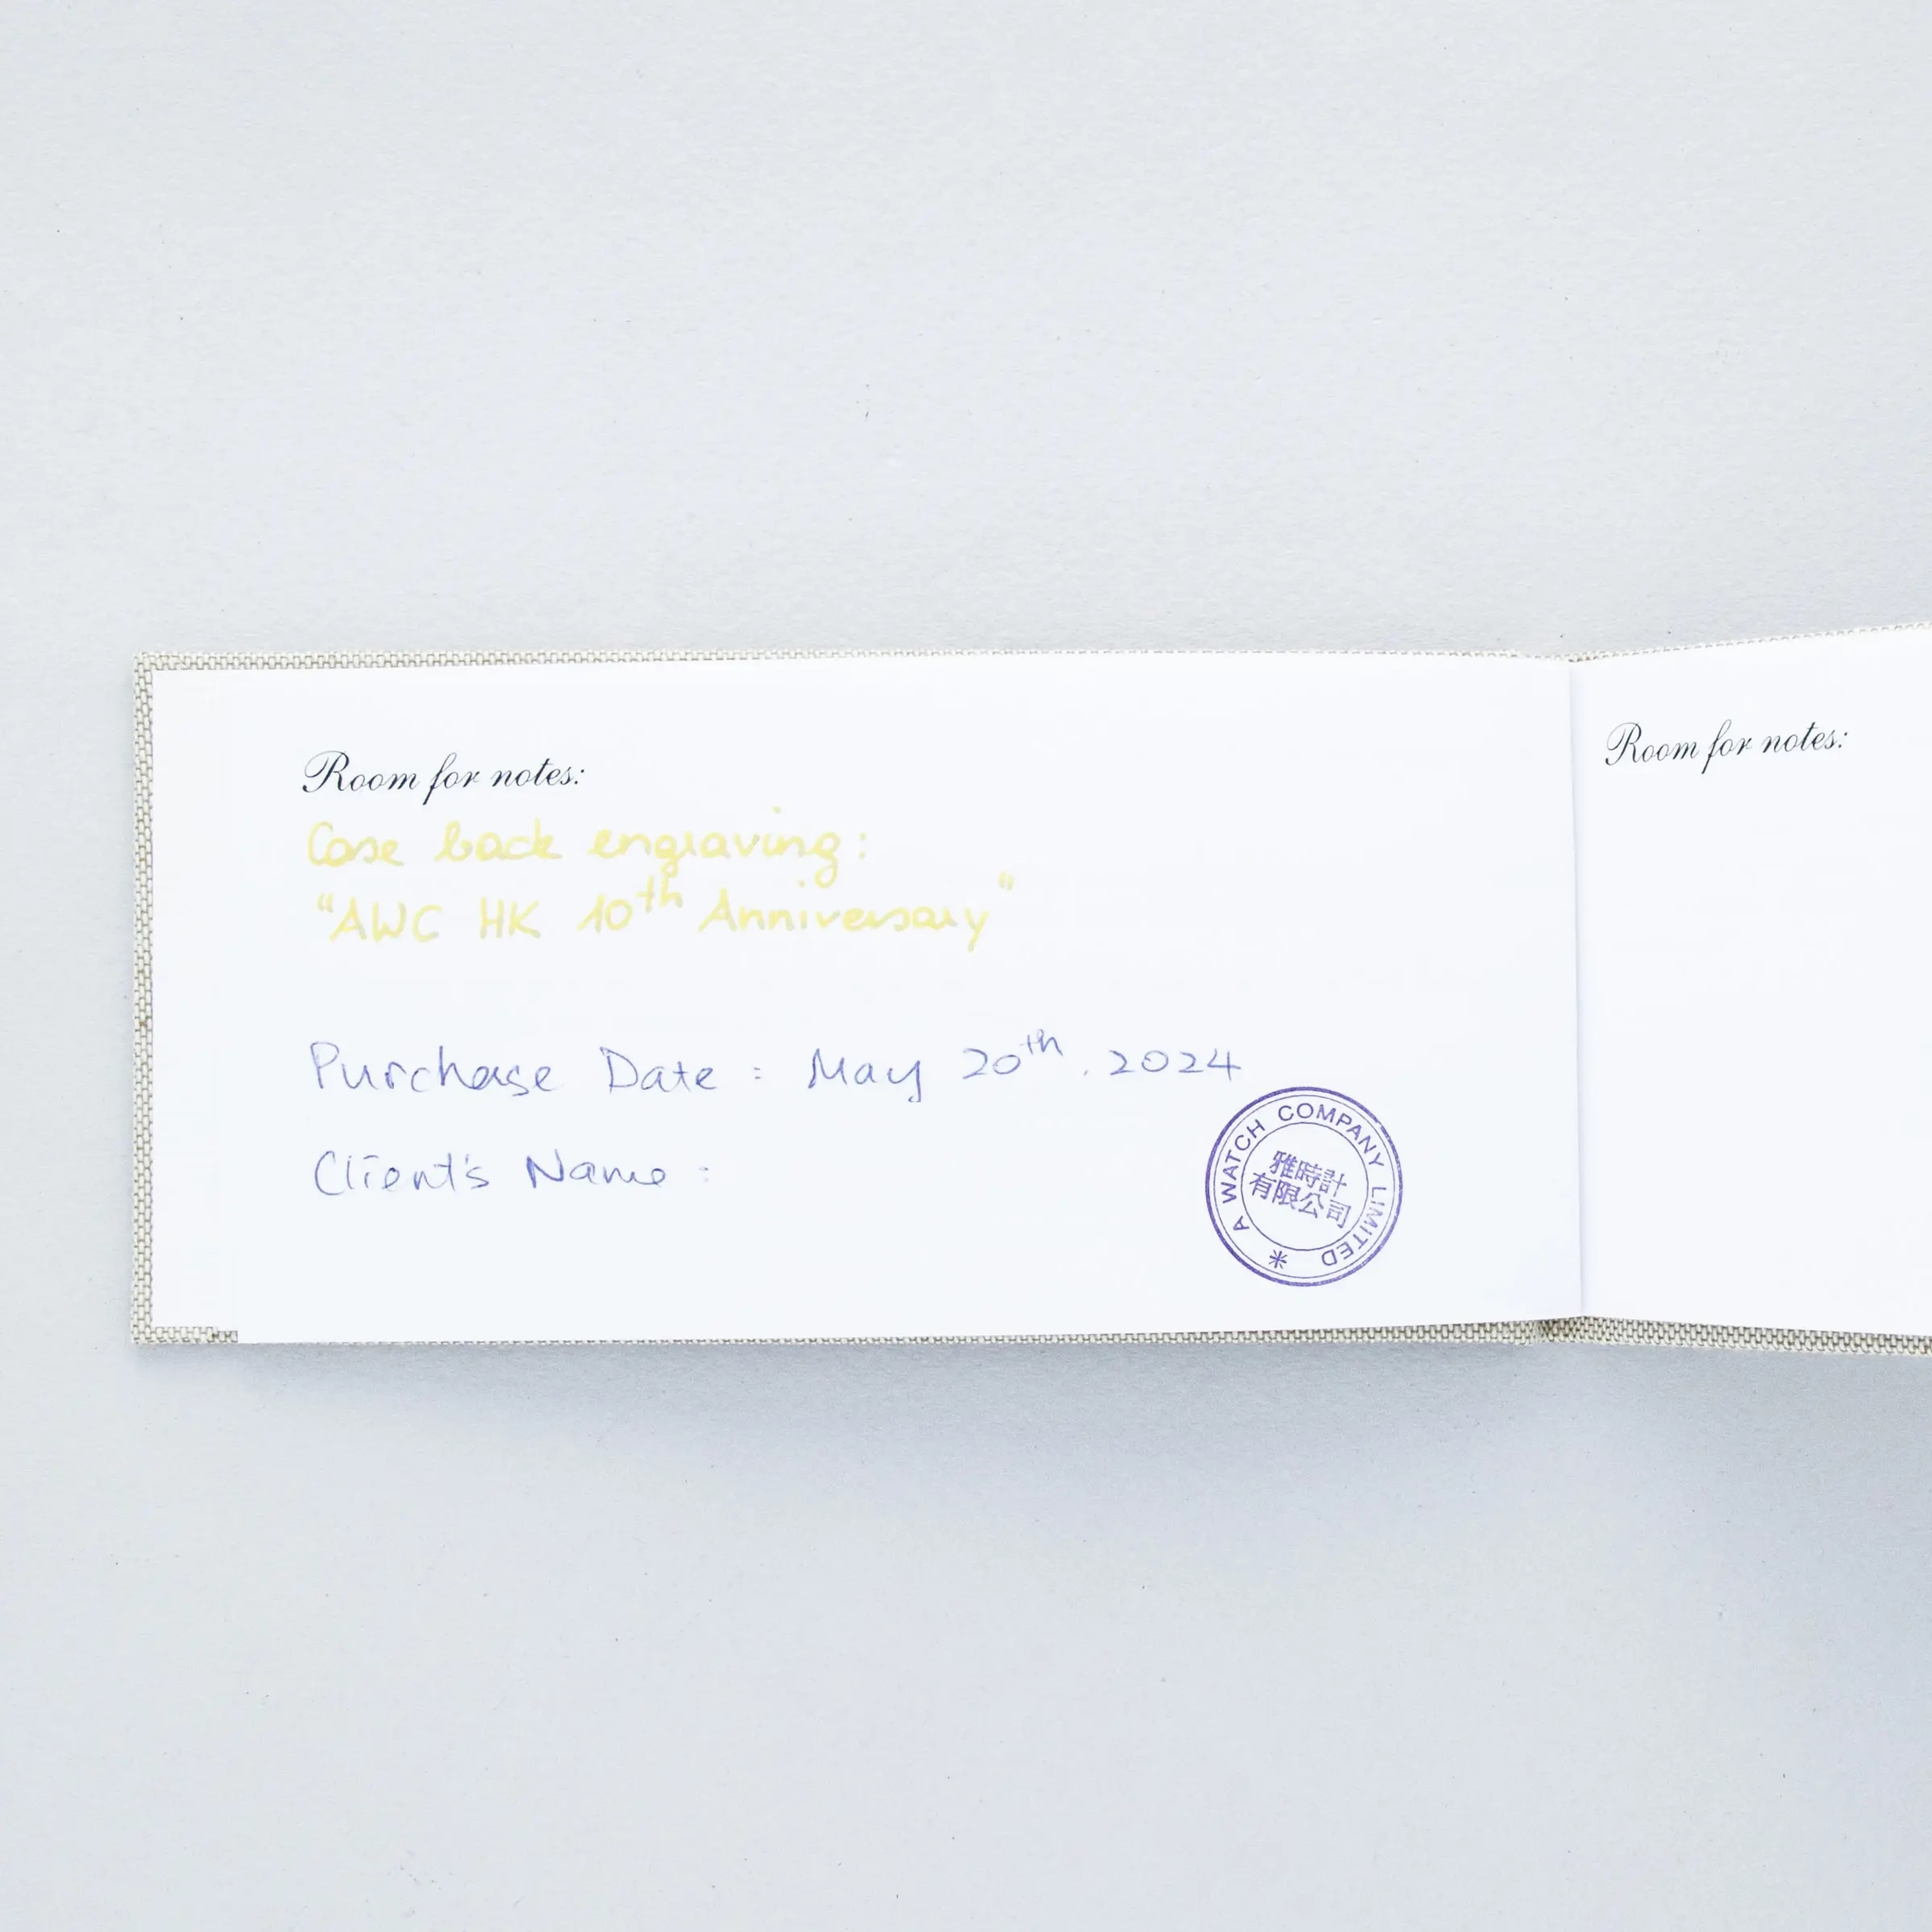 Room for notes:
Case back engraving:
"AWC HK 10th Anniversary"
Purchase Date : May 20th. 2024
Client's Name :
A WATCH COMPANY LIMITED *
雅時計
有限公司
Room for notes: